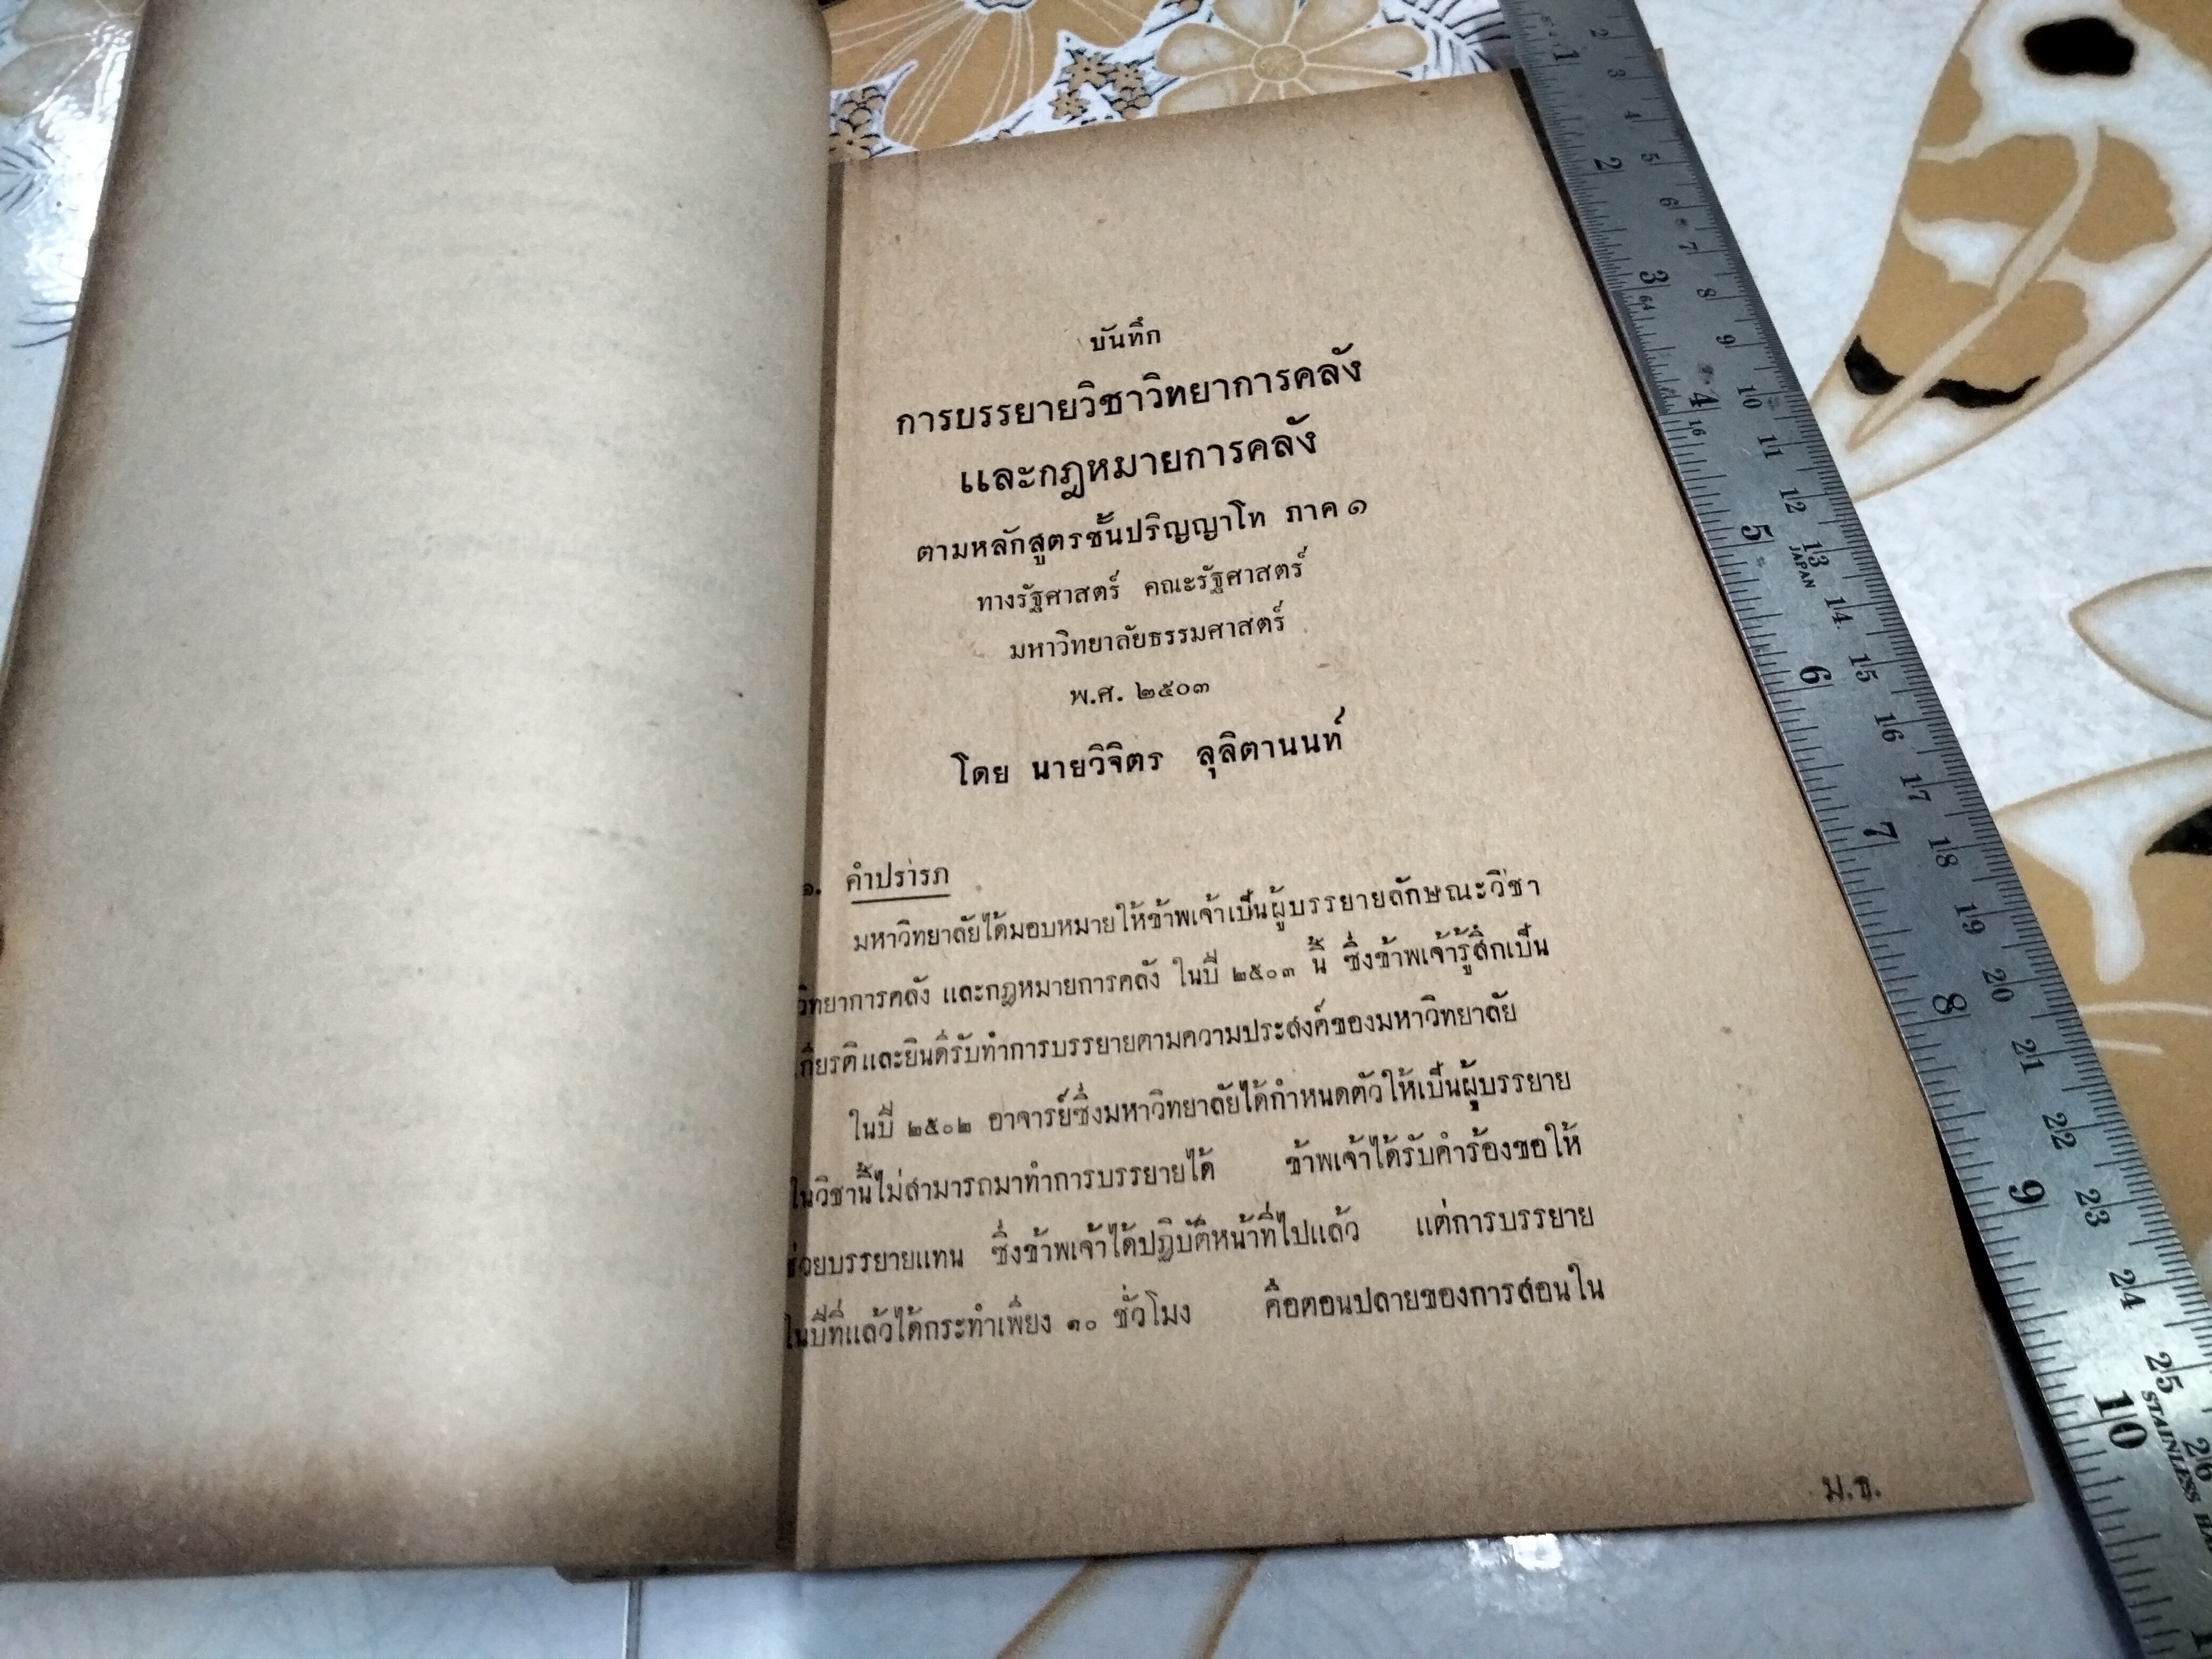 บันทึก
การบรรยายวิชาวิทยาการคลัง
และกฎหมายการคลัง
ตามหลักสูตรชั้นปริญญาโท ภาค ๑
ทางรัฐศาสตร์ คณะรัฐศาสตร์
มหาวิทยาลัยธรรมศาสตร์
พ.ศ. ๒๕๐๓
โดย นายวิจิตร ลุลิตานนท์
๑. คำปรารภ
มหาวิทยาลัยได้มอบหมายให้ข้าพเจ้าเป็นผู้บรรยายลักษณะวิชา
วิทยาการคลัง และกฎหมายการคลัง ในปี ๒๕๐๓ นี้ ซึ่งข้าพเจ้ารู้สึกเป็น
เกียรติและยินดีรับทำการบรรยายตามความประสงค์ของมหาวิทยาลัย
ในปี ๒๕๐๒ อาจารย์ซึ่งมหาวิทยาลัยได้กำหนดตัวให้เป็นผู้บรรยาย
ในวิชานี้ไม่สามารถมาทำการบรรยายได้ ข้าพเจ้าได้รับคำร้องขอให้
ช่วยบรรยายแทน ซึ่งข้าพเจ้าได้ปฏิบัติหน้าที่ไปแล้ว แต่การบรรยาย
ในปีที่แล้วได้กระทำเพียง ๑๐ ชั่วโมง คือตอนปลายของการสอนใน
ม.ธ.
1 2 3 4 5 6 7 8 9 10
2 3 4 5 6 7 8 9 10 11 12 13 14 15 16 17 18 19 20 21 22 23 24 25 26
64
16
JAPAN
STAINLESS